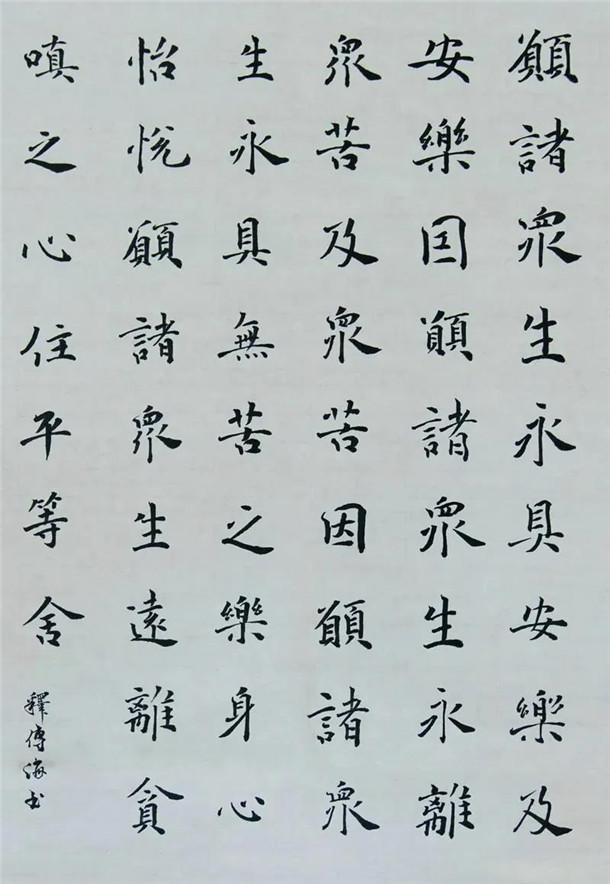 願諸眾生永具安樂及
安樂因願諸眾生永離
眾苦及眾苦因願諸眾
生永具無苦之樂身心
怡悅願諸眾生遠離貪
嗔之心住平等舍
釋傳海書